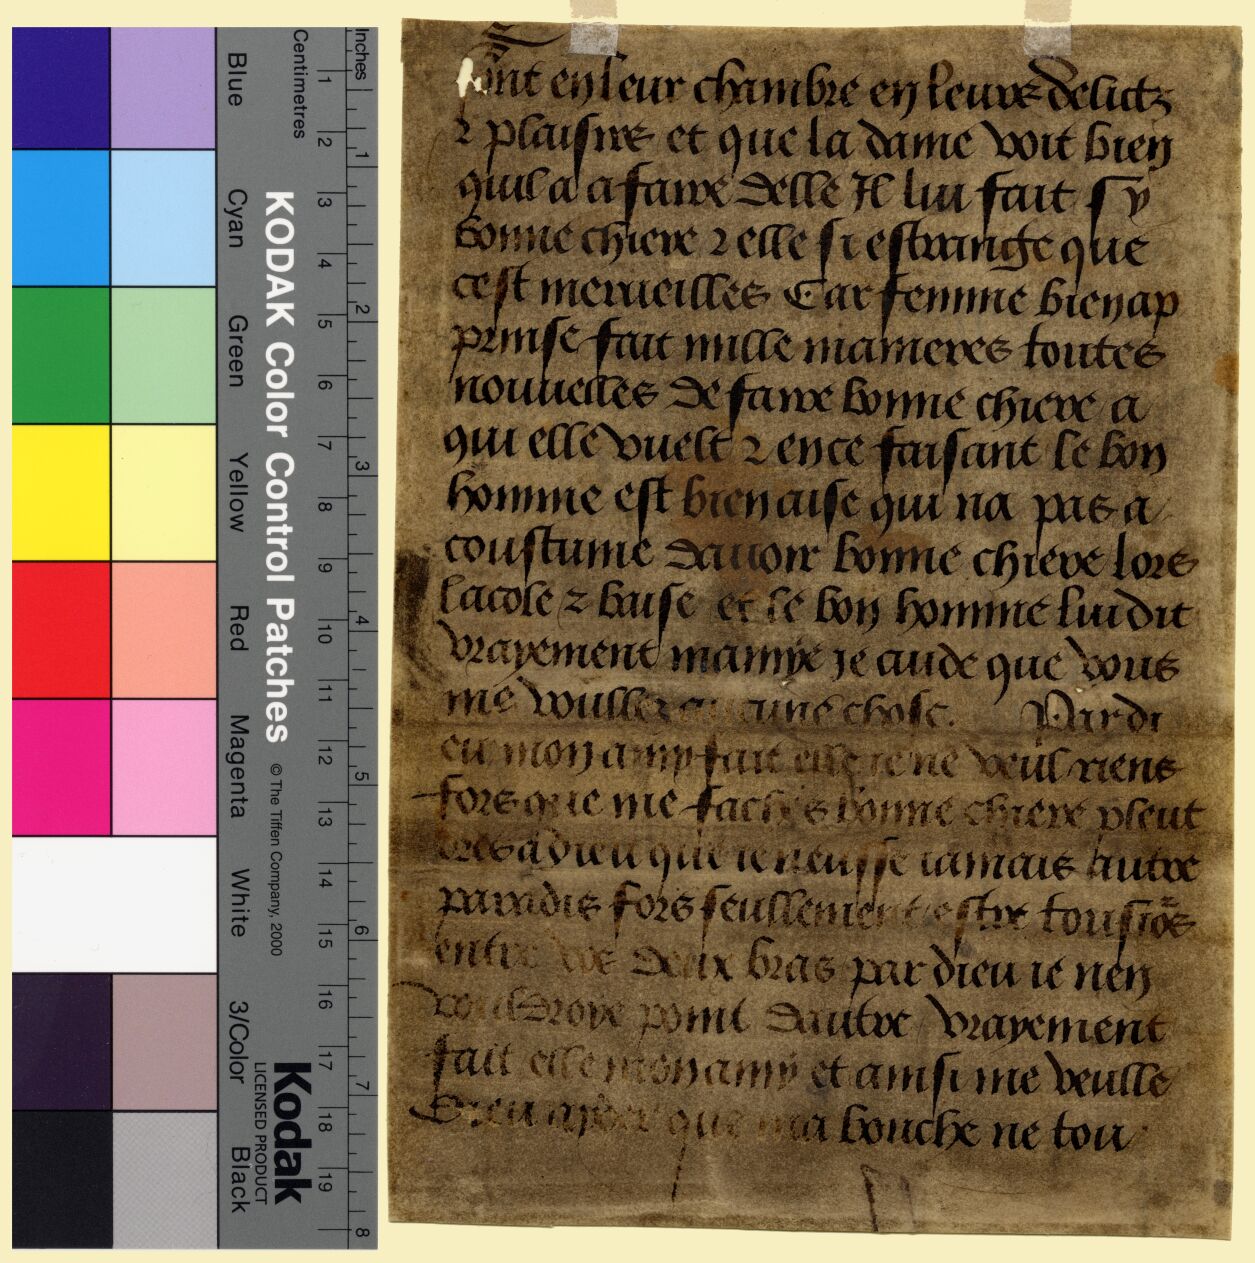 Inches
Centimetres
1 2 3 4 5 6 7 8 9 10 11 12 13 14 15 16 17 18 19
1 2 3 4 5 6 7 8
Blue
Cyan
Green
Yellow
Red
Magenta
White
3/Color
Black
KODAK Color Control Patches
© The Tiffen Company, 2000
Kodak
LICENSED PRODUCT
sont en leur chambre en leurs delictz
⁊ plaisirs et que la dame voit bien
quil a a faire delle Il lui fait sy
bonne chiere ⁊ elle si estrange que
cest merueilles Car femme bien ap
prinse fait mille manieres toutes
nouuelles de faire bonne chiere a
qui elle vuelt ⁊ en ce faisant le bon
homme est bien aise qui na pas a
coustume dauoir bonne chiere lors
lacole ⁊ baise et le bon homme lui dit
vrayement mamye je cuide que vous
me voullez aucune chose. Pardi
eu mon amy fait elle ie ne veul riens
fors que me faciés bonne chiere pleut
ores a dieu que ie neusse iamais autre
paradis fors seullement estre tousiors
entre vos deux bras par dieu ie nen
vouldroye point dautre vrayement
fait elle mon amy et ainsi me veulle
Dieu ayder que ma bouche ne tou